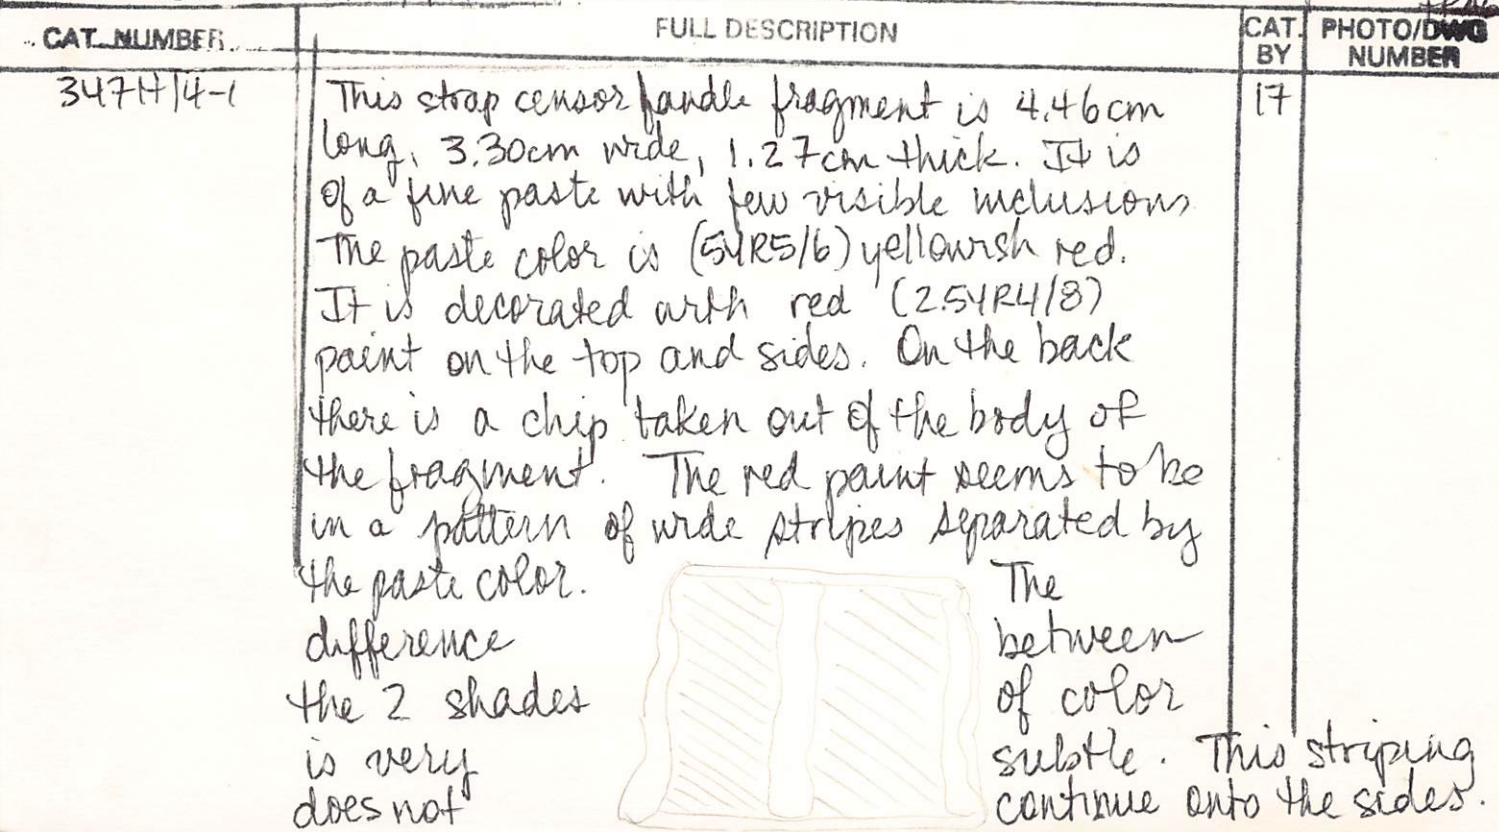 CAT. NUMBER FULL DESCRIPTION CAT. BY PHOTO/DWG NUMBER
347H/4-1 This strap censor handle fragment is 4.46cm 17
long, 3.30cm wide, 1.27cm thick. It is
of a fine paste with few visible inclusions
The paste color is (5YR5/6) yellowish red.
It is decorated with red (2.5YR4/8)
paint on the top and sides. On the back
there is a chip taken out of the body of
the fragment. The red paint seems to be
in a pattern of wide stripes separated by
the paste color. The
difference between
the 2 shades of color
is very subtle. This striping
does not continue onto the sides.